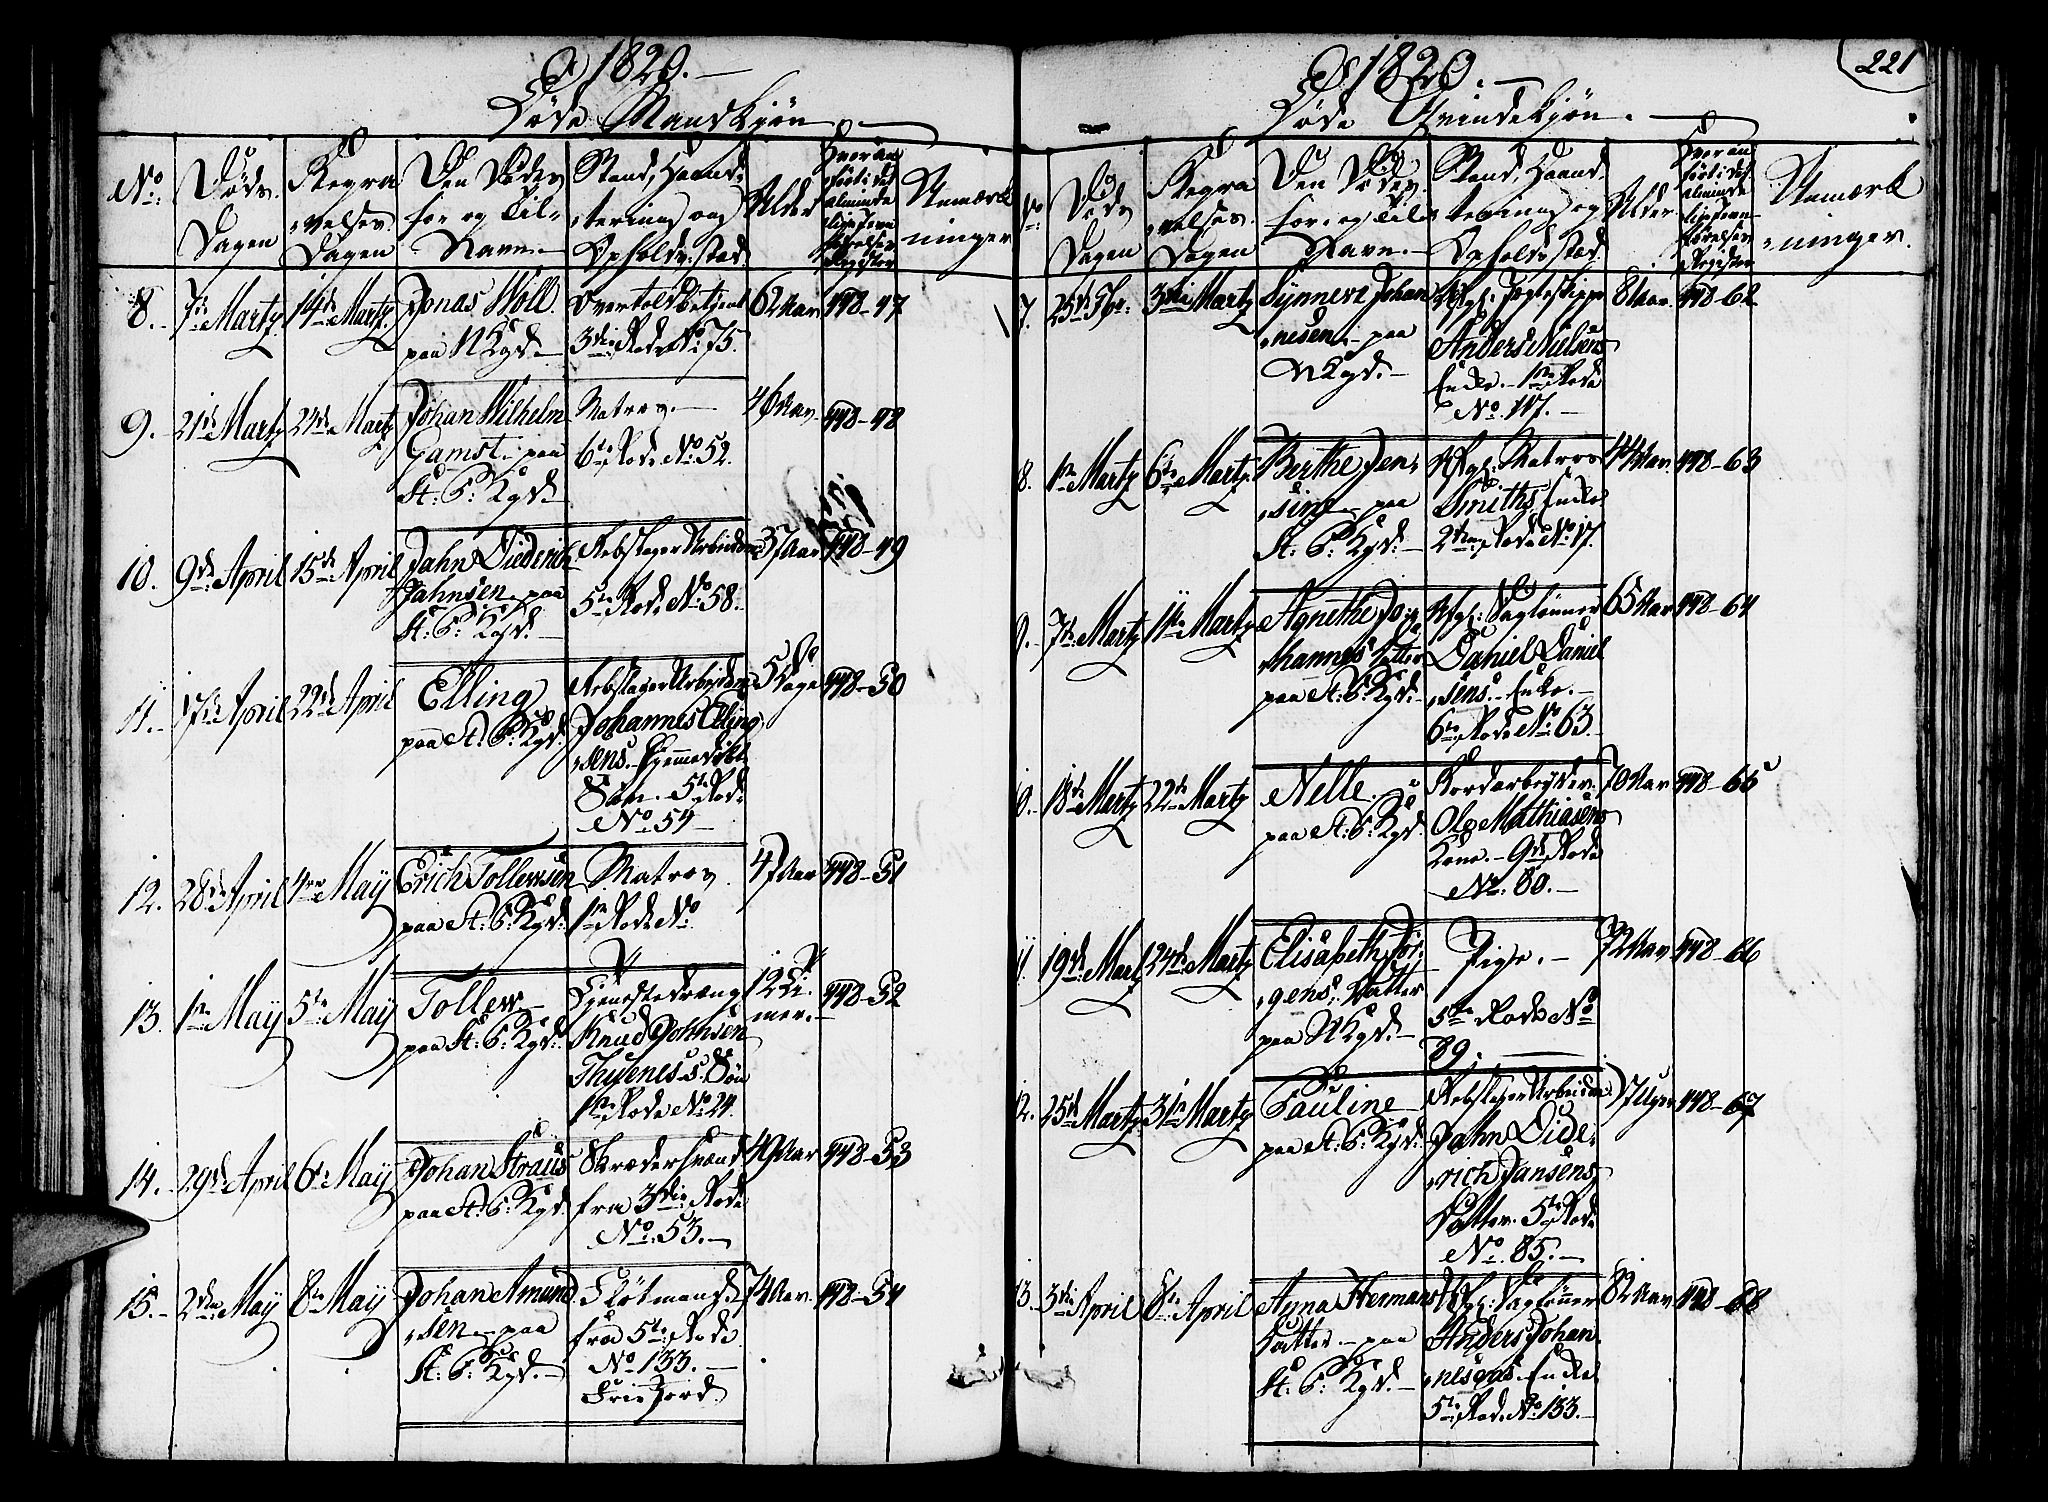 A 1820.
Døde Mandkjøn
No:
Døds
Dagen
Begra
velses
Dagen
Den Dødes
for og Til-
Navn.
Stand, Haand-
tering og
Opholds-sted
Alder
Hvor an
ført i det
alminde
lige Jevn
førelses
Register
Anmærk
ninger
8. 7de Martz 14de Martz Jonas Woll
paa NKgd.
Overtoldbetjent
3die Rode No 75.
62 Aar 448-47
9. 21de Martz 24de Martz Johan Wilhelm
Gamst. paa
St: P: Kgd.
Matros.
6te Rode No 52.
46 Aar 448-48
10. 9de April 15de April Jahn Diederich
Jahnsen paa
St: P: Kgd.
Rebslager Arbeider
5te Rode No 58.
37 Aar 448-49
11. 17de April 22de April Elling
paa St: P: Kgd.
Rebslager Arbeider
Johannes Elling
sens Hjemmedøbt
Søn. 5te Rode
No. 54
5 Dage 448-50
12. 28de April 4de May Erich Tollewsen
paa St: P: Kgd.
Matros
1ste Rode No
47 Aar 448-51
13. 1ste May 5te May Tollew
paa St: P: Kgd.
Tjenestedreng
Knud Johnsen
Thuenes s. Søn
1ste Rode No 24.
12 Ti
mer. 448-52
14. 29de April 6te May Johan Straus
paa St: P: Kgd.
Skrædersvend
fra 3die Rode
No. 53.
49 Aar 448-53
15. 2den May 8de May Johan Amund
sen paa
St: P: Kgd.
Fløtmand
fra 5te Rode
No 133.
Frie Jord.
74 Aar. 448-54
221
A 1820.
Døde Qvindekjøn.
No:
Døds
Dagen
Begra
velses
Dagen
Den Dødes
for og Til
Navn.
Stand, Haand-
tering og
Opholds sted.
Alder.
Hvor an
ført i det
alminde
lige Jevn
førelses
Register
Anmærk
ninger.
7. 25de Fbr: 3die Martz Synneve Johan
nesen paa
NKgd.
Afg: Jagteskipper
Anders Nielsens
Enke. 1ste Rode
No. 117.
81 Aar. 448-62
8. 1ste Martz 6te Martz Berthe Jen
sine paa
St: P: Kgd:
Afg: Matros
Smiths Enke
2den Rode No 17.
44 Aar. 448-63
9. 7de Martz 11te Martz Agnethe Jo
hannes Datter
paa St: P: Kgd.
Afg: Dagleiner
Daniel Daniel
sens Enke.
6te Rode No 63.
65 Aar 448-64
10. 18de Martz 22de Martz Nelle
paa St: P: Kgd.
Jordarbejder
Ole Mathiasens
Kone. 9de Rode
No. 80.
70 Aar 448-65
11. 19de Martz 24de Martz Elisabeth Jør
gens Datter
paa NKgd.
Pige.
5te Rode No
89.
72 Aar 448-66
12. 25de Martz 31te Martz Pauline
paa St: P: Kgd.
Rebslager Arbeider
Jahn Dide
rich Jansens
Datter. 5te Rode
No. 85.
17 Uger 448-67
13. 3die April 8de April Anna Hermans
Datter. paa
St: P: Kgd.
Afg: Dagleiner
Anders Johan
nesens Enke
5te Rode No 133.
82 Aar 448-68